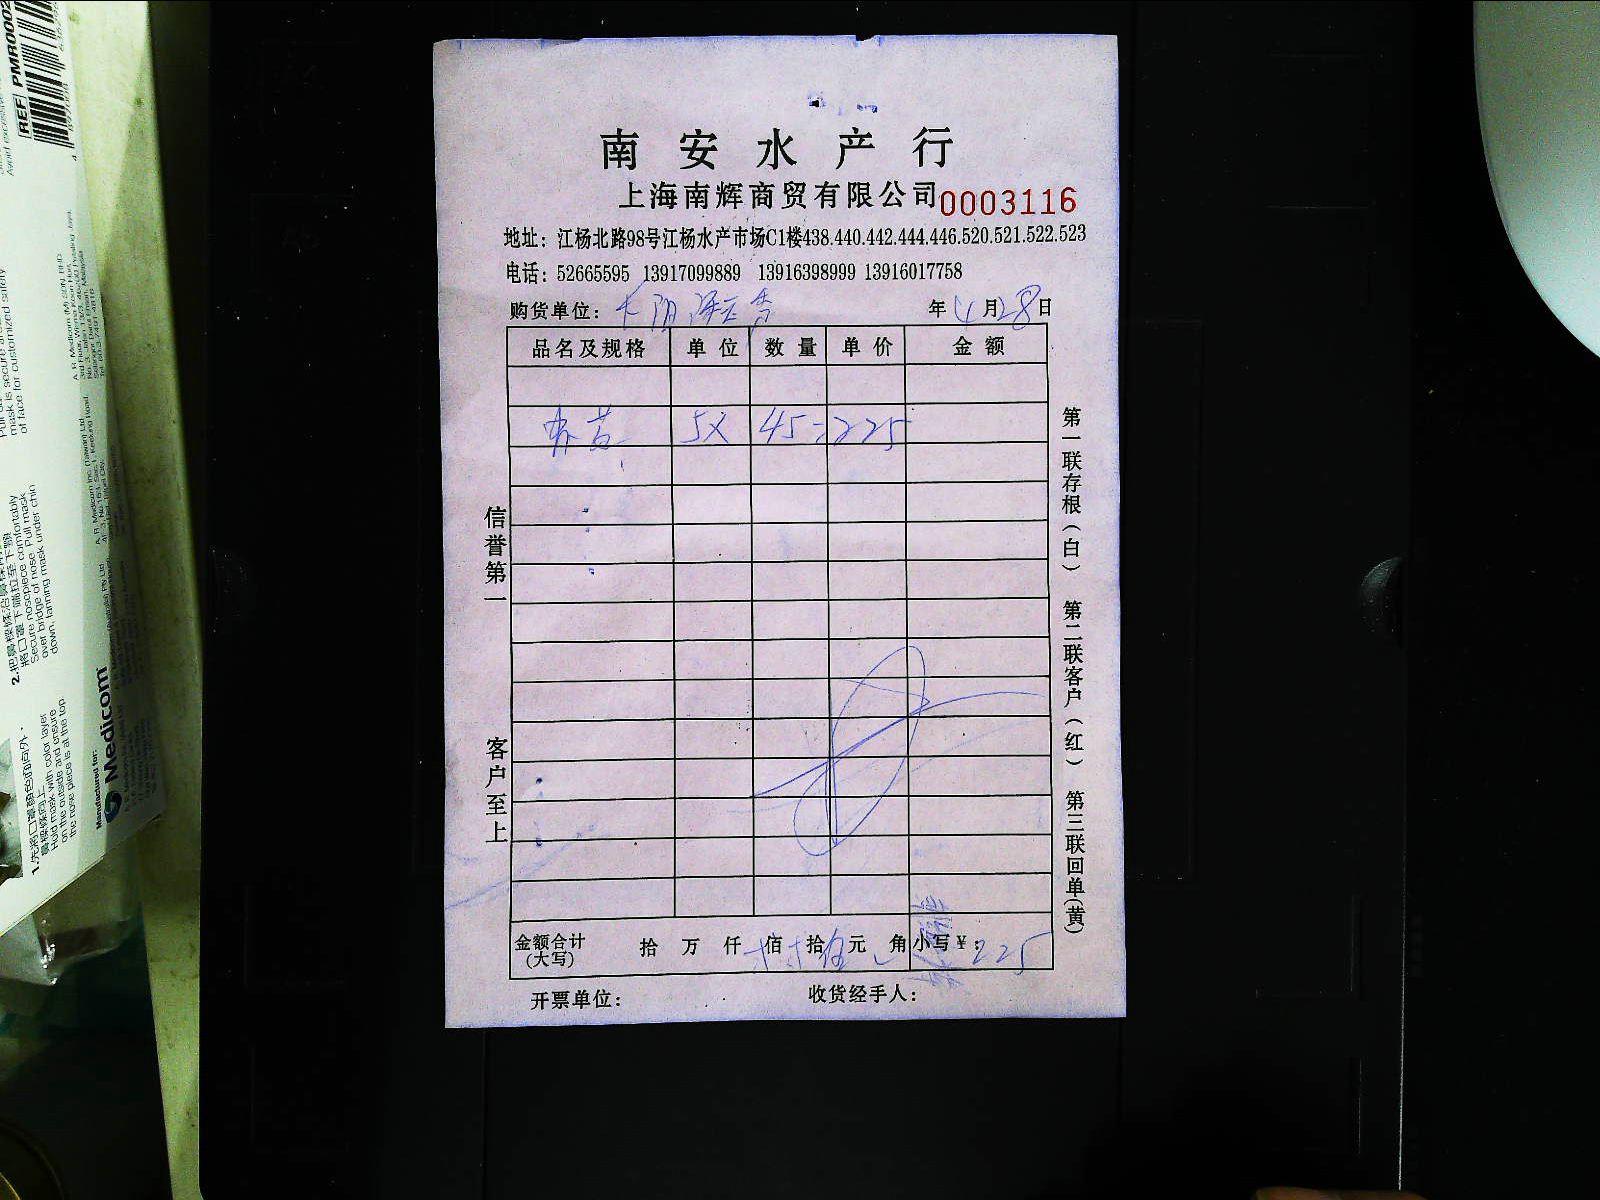 南安水产行
上海南辉商贸有限公司 0003116
地址：江杨北路98号江杨水产市场C1楼438.440.442.444.446.520.521.522.523
电话：52665595 13917099889 13916398999 13916017758
购货单位： 年4月28日
品名及规格 单位 数量 单价 金额
5X 45=225
信誉第一
客户至上
第一联存根（白） 第二联客户（红） 第三联回单（黄）
金额合计（大写） 拾 万 仟 佰 拾 伍元 角 小写￥：225
开票单位： 收货经手人：
REF PMR0002
2.把鼻樑條沿鼻樑
將口罩下端拉至下顎
Secure nosepiece comfortably
over bridge of nose. Pull mask
down, fanning mask under chin
mask is secure
of face for customized safety
1.先將口罩顏色面向外，
鼻樑條向上
Hold mask with color layer
on the outside and ensure
the nose piece is at the top
Manufactured for:
Medicom